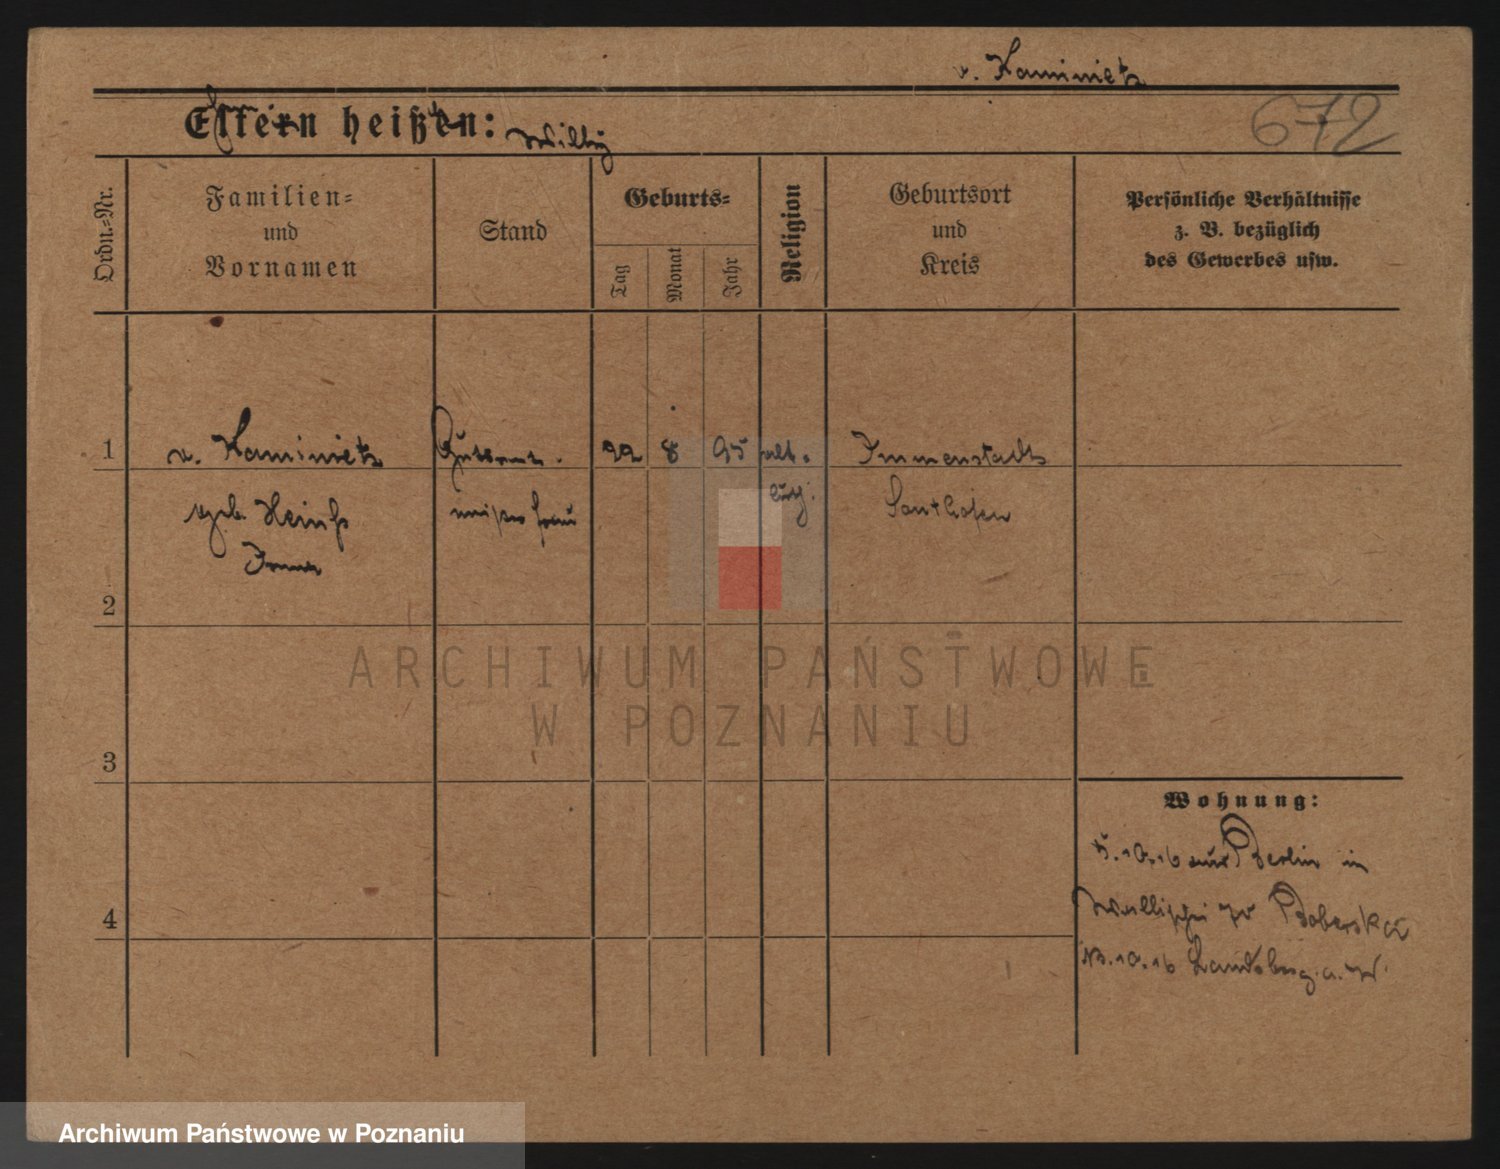 v. Kaminietz
672
Eltern heißen: Willy
Ordn.-Nr.
Familien-
und
Vornamen
Stand
Geburts-
Tag
Monat
Jahr
Religion
Geburtsort
und
Kreis
Persönliche Verhältnisse
z. B. bezüglich
des Gewerbes usw.
1
v. Kaminietz
22 8 95 alt.
Immenstadt
geb.
frau
luth.
Sonthofen
2
3
4
Wohnung:
5.10.16 aus Berlin in
Wallischei
13.10.16 Landsberg a. W.
ARCHIWUM PAŃSTWOWE
W POZNANIU
Archiwum Państwowe w Poznaniu